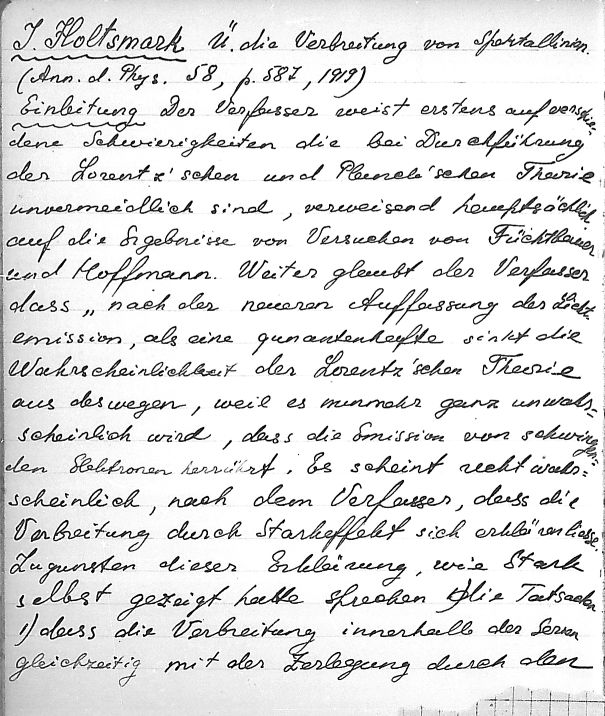 J. Holtsmark Ü. die Verbreitung von Spektallinien.
(Ann. d. Phys. 58, p. 587, 1919)
Einleitung Der Verfasser weist erstens auf verschie-
dene Schwierigkeiten die bei Durchführung
der Lorentz'schen und Planck'schen Theorie
unvermeidlich sind, verweisend hauptsächlich
auf die Ergebnisse von Versuchen von Füchtbauer
und Hoffmann. Weiter glaubt der Verfasser
dass „nach der neueren Auffassung der Licht-
emission, als eine qunantenhafte sinkt die
Wahrscheinlichkeit der Lorentz'schen Theorie
aus deswegen, weil es nunmehr ganz unwahr=
scheinlich wird, dass die Emission von schwingen-
den Elektronen herrührt. Es scheint recht wahr=
scheinlich, nach dem Verfasser, dass die
Verbreitung durch Starkeffekt sich erklären liesse.
Zugunsten dieser Erklärung, wie Stark
selbst gezeigt hatte sprechen die Tatsachen
1) dass die Verbreitung innerhalb der Serien
gleichzeitig mit der Zerlegung durch den